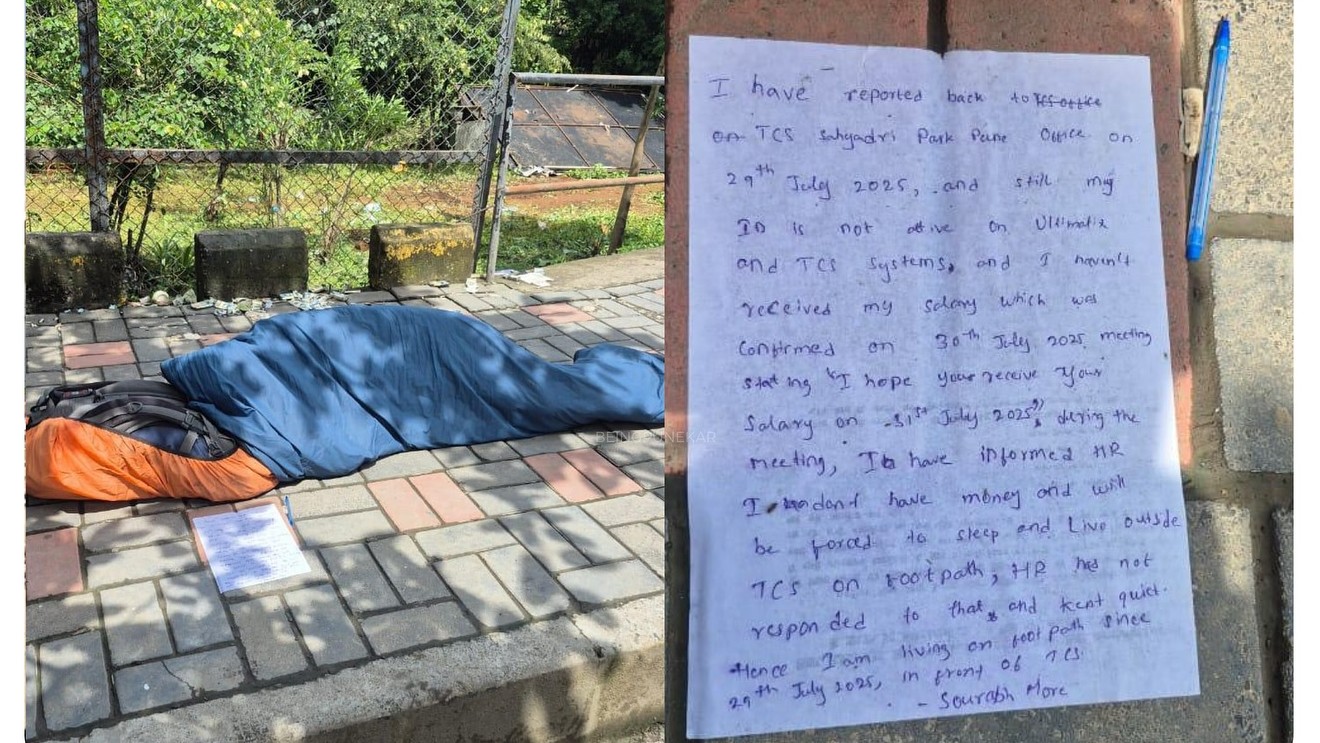 BEING PUNEKAR
I have reported back to TCS office
on TCS Sahyadri Park Pune Office on
29th July 2025, and still my
ID is not ative on Ultimatix
and TCS Systems, and I haven't
received my salary which was
Confirmed on 30th July 2025 meeting
stating "I hope your receive your
Salary on 31st July 2025", during the
meeting, I have informed HR
I dont have money and will
be forced to sleep and Live outside
TCS on footpath, HR has not
responded to that, and kept quiet.
Hence I am living on footpath since
29th July 2025, in front of TCS
- Sourabh More